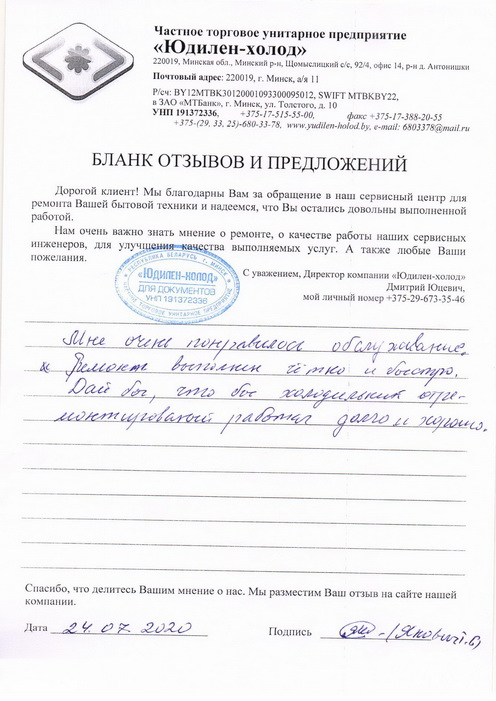 Частное торговое унитарное предприятие
«Юдилен-холод»
220019, Минская обл., Минский р-н, Щомыслицкий с/с, 92/4, офис 14, р-н д. Антонишки
Почтовый адрес: 220019, г. Минск, а/я 11
Р/сч: BY12MTBK30120001093300095012, SWIFT MTBKBY22,
в ЗАО «МТБанк», г. Минск, ул. Толстого, д. 10
УНП 191372336, +375-17-515-55-00, факс +375-17-388-20-55
+375-(29, 33, 25)-680-33-78, www.yudilen-holod.by, e-mail: 6803378@mail.ru
БЛАНК ОТЗЫВОВ И ПРЕДЛОЖЕНИЙ
Дорогой клиент! Мы благодарны Вам за обращение в наш сервисный центр для
ремонта Вашей бытовой техники и надеемся, что Вы остались довольны выполненной
работой.
Нам очень важно знать мнение о ремонте, о качестве работы наших сервисных
инженеров, для улучшения качества выполняемых услуг. А также любые Ваши
пожелания.
С уважением, Директор компании «Юдилен-холод»
Дмитрий Юцевич,
мой личный номер +375-29-673-35-46
РЕСПУБЛИКА БЕЛАРУСЬ, Г. МИНСК
«ЮДИЛЕН-ХОЛОД»
ДЛЯ ДОКУМЕНТОВ
УНП 191372336
ТОРГОВОЕ УНИТАРНОЕ ПРЕДПРИЯТИЕ
Мне очень понравилось обслуживание.
Ремонт выполнен чётко и быстро.
Дай бог, что бы холодильник отре-
монтированый работал долго и хорошо.
Спасибо, что делитесь Вашим мнение о нас. Мы разместим Ваш отзыв на сайте нашей
компании.
Дата 24.07.2020 Подпись